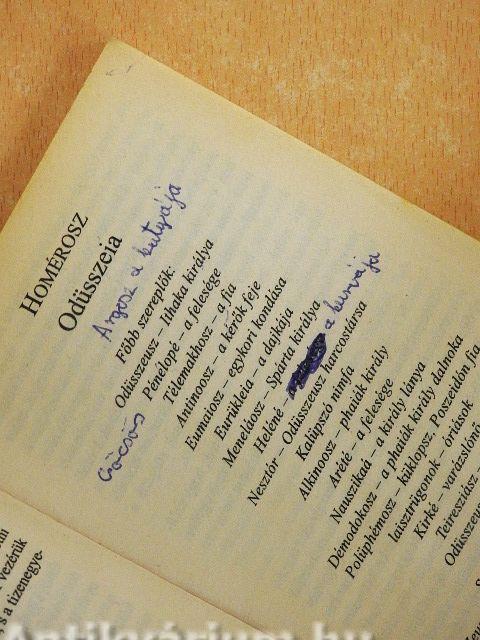 HOMÉROSZ
Odüsszeia
Argosz a kutyája
Főbb szereplők:
Odüsszeusz – Ithaka királya
Csöcsös Pénelopé – a felesége
Télemakhosz – a fia
Antinoosz – a kérők feje
Eumaiosz – egykori kondása
Eurükleia – a dajkája
Menelaosz – Spárta királya
Helené – a kurvája
Nesztór – Odüsszeusz harcostársa
Kalüpszó nimfa
Alkinoosz – phaiák király
Arété – a felesége
Nauszikaá – a király lánya
Démodokosz – a phaiák király dalnoka
Polüphémosz – küklopsz, Poszeidón fia
laisztrügonok – óriások
Kirké – varázslónő
Teiresziász –
Odüsszeu
vezérük
s a tizenegye-
Antikvárium.hu